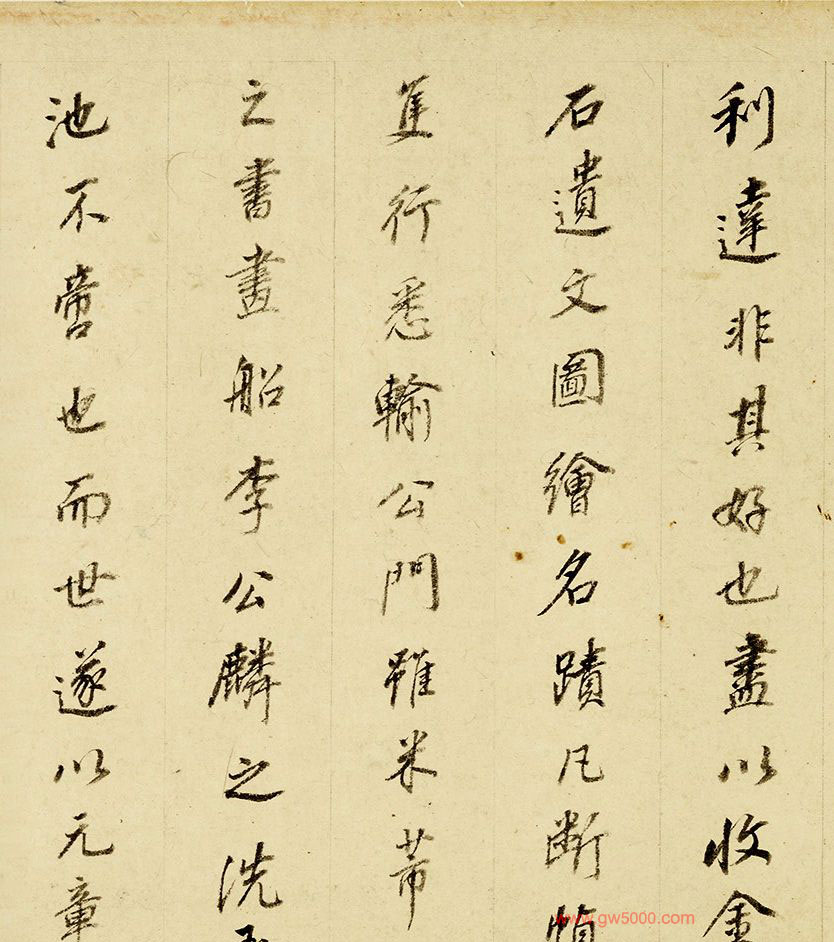 利達非其好也盡以收金
石遺文圖繪名蹟凡斷幀
隻行悉輸公門雖米芾
之書畫船李公麟之洗玉
池不啻也而世遂以元章
www.gw5000.com